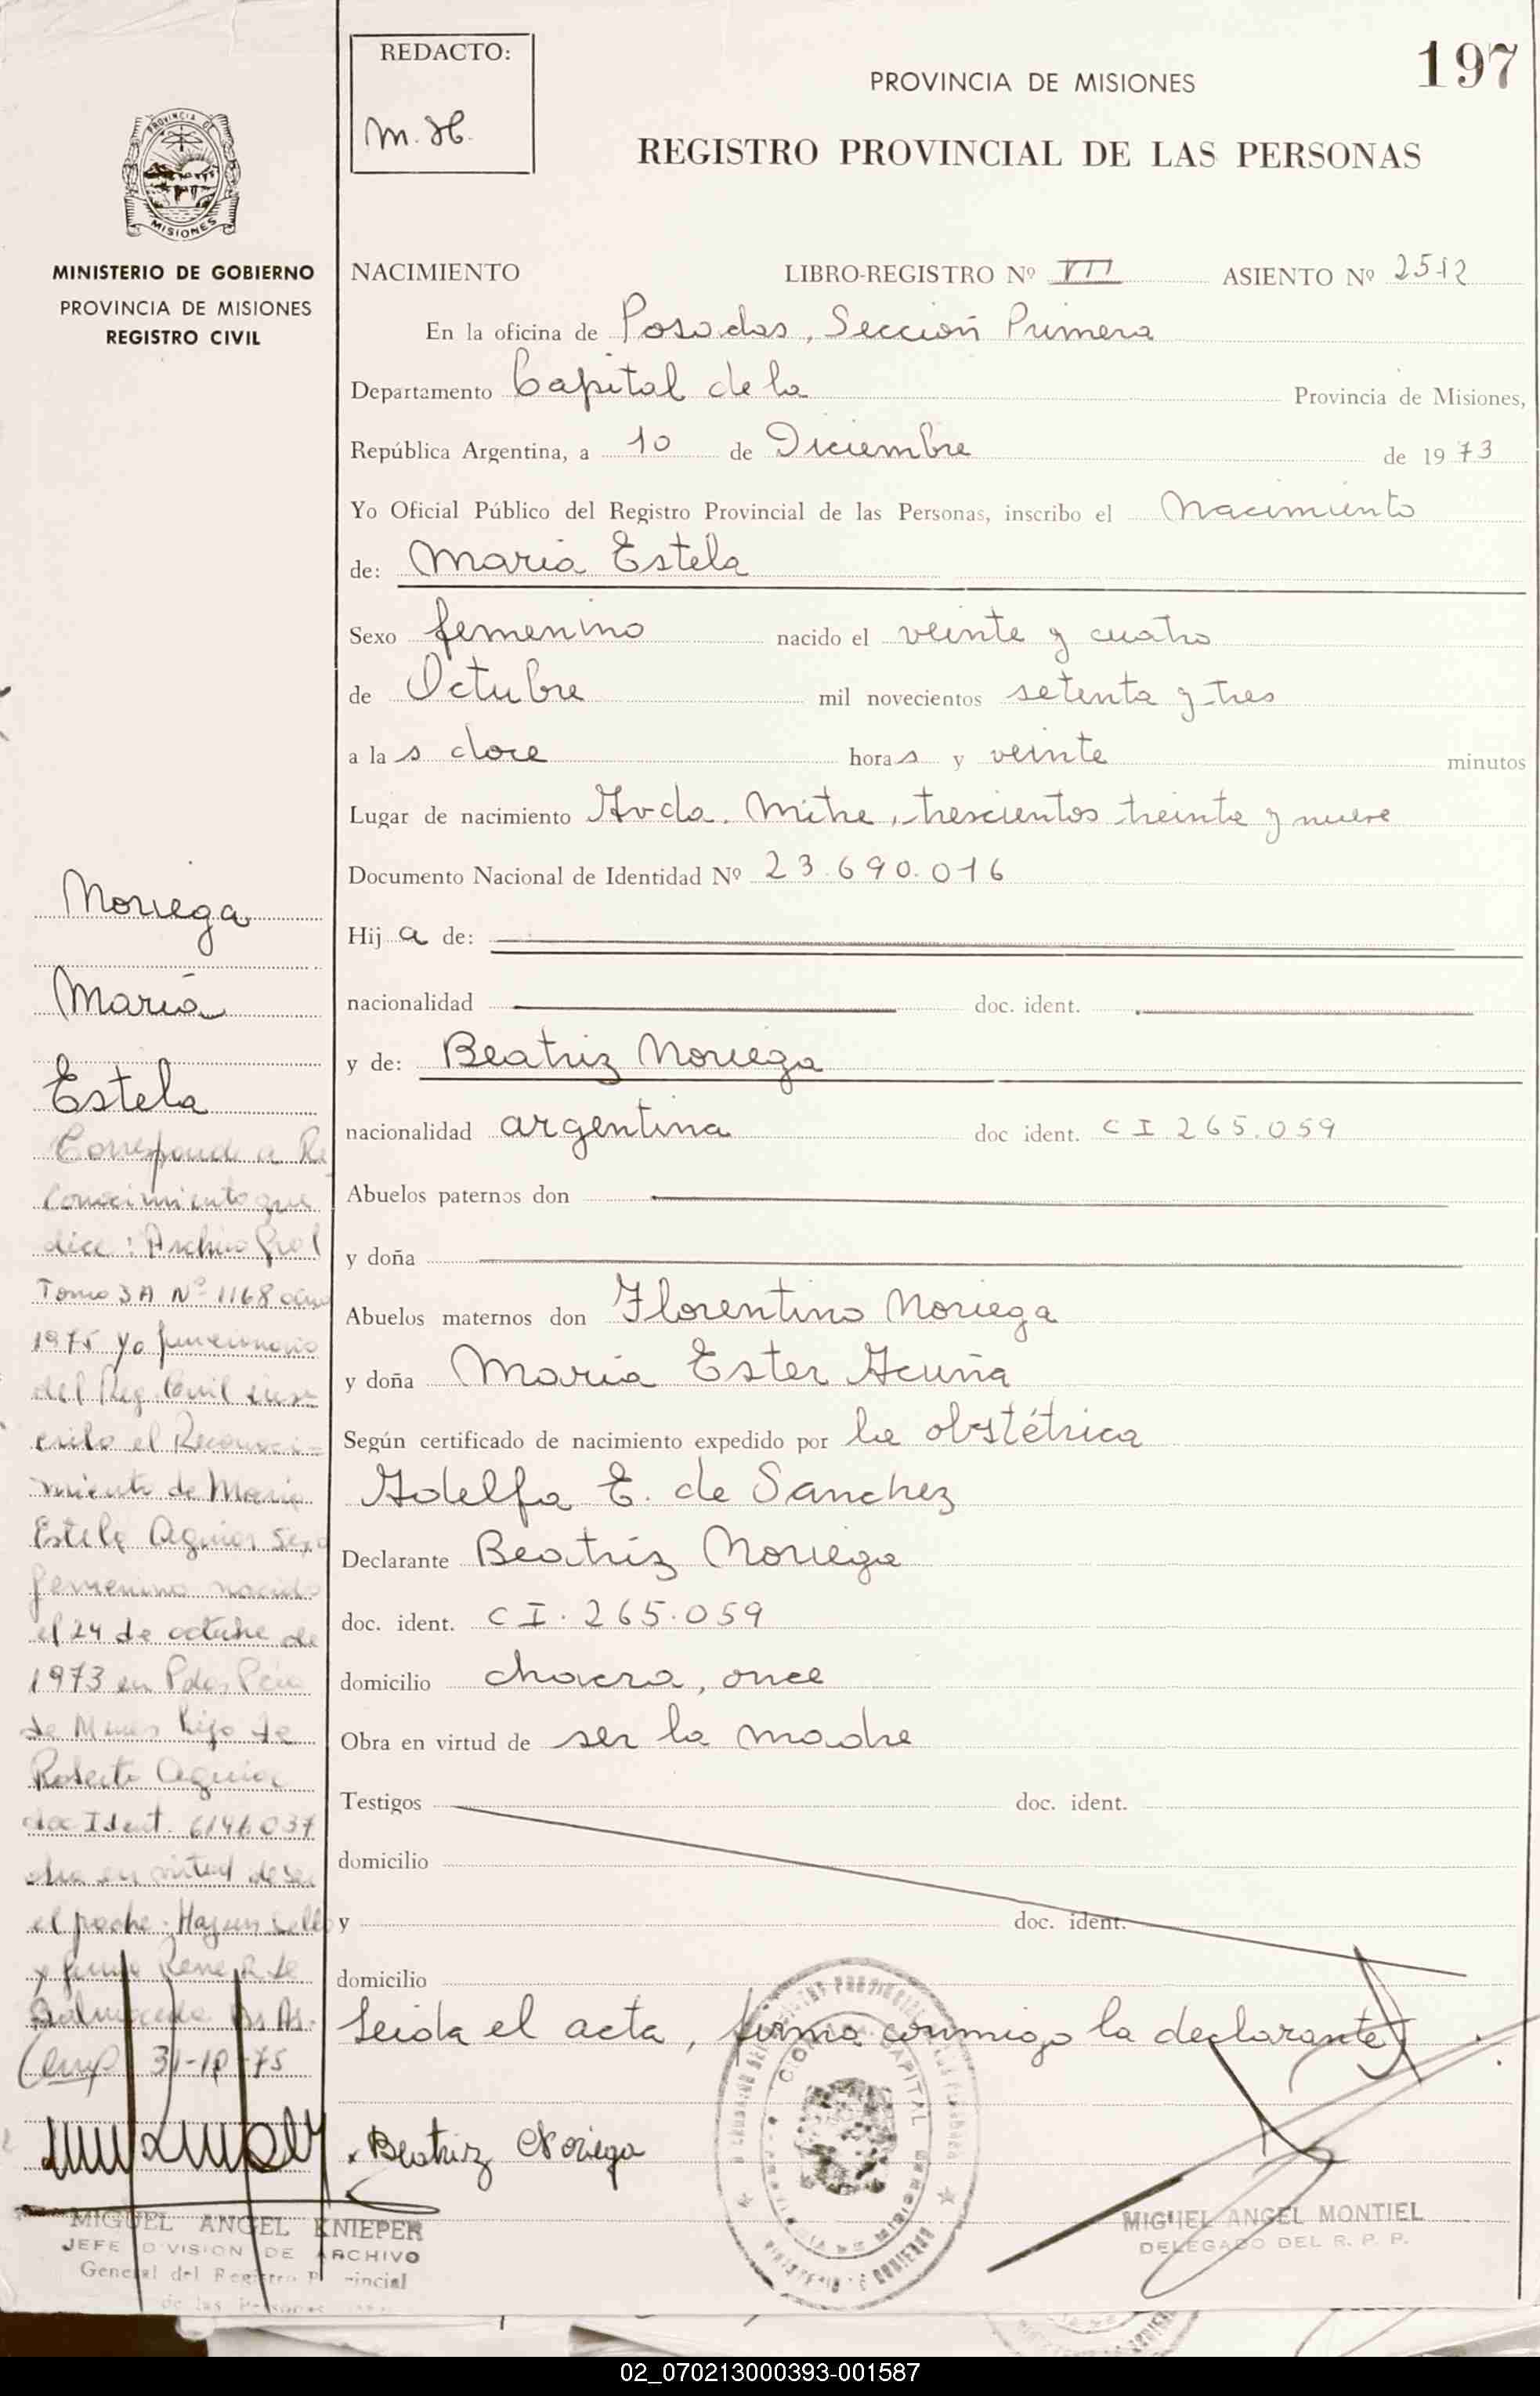 REDACTO:
M. H.
197
PROVINCIA DE MISIONES
REGISTRO PROVINCIAL DE LAS PERSONAS
PROVINCIA DE
MISIONES
MINISTERIO DE GOBIERNO
PROVINCIA DE MISIONES
REGISTRO CIVIL
NACIMIENTO LIBRO-REGISTRO Nº VII ASIENTO Nº 2512
En la oficina de Posadas, Sección Primera
Departamento Capital de la Provincia de Misiones,
República Argentina, a 10 de Diciembre de 1973
Yo Oficial Público del Registro Provincial de las Personas, inscribo el Nacimiento
de: María Estela
Sexo femenino nacido el veinte y cuatro
de Octubre mil novecientos setenta y tres
a las doce horas y veinte minutos
Lugar de nacimiento Avda. Mitre, trescientos treinta y nueve
Documento Nacional de Identidad Nº 23.690.016
Hija de:
nacionalidad doc. ident.
y de: Beatriz Noriega
nacionalidad argentina doc ident. CI 265.059
Abuelos paternos don
y doña
Abuelos maternos don Florentino Noriega
y doña María Ester Acuña
Según certificado de nacimiento expedido por la obstétrica
Adelfa E. de Sanchez
Declarante Beatriz Noriega
doc. ident. CI. 265.059
domicilio chacra, once
Obra en virtud de ser la madre
Testigos doc. ident.
domicilio
y doc. ident.
domicilio
Leida el acta, firma conmigo la declarante
Beatriz Noriega
MIGUEL ANGEL MONTIEL
DELEGADO DEL R. P. P.
Noriega
María
Estela
Corresponde a Re
conocimiento que
dice: Archivo Gral
Tomo 3A Nº 1168 año
1975 Yo funcionario
del Reg. Civil ins
cribo el Reconoci-
miento de Maria
Estela Aguiar sexo
femenino nacido
el 24 de octubre de
1973 en Pdas Pcia
de Mnes hijo de
Roberto Aguiar
doc Ident. 6146037
obra en virtud de ser
el padre. Hay un sello
y firma Rene R. de
Balmaceda Bs As.
31-10-75
MIGUEL ANGEL KNIEPER
JEFE DIVISION DE ARCHIVO
General del Registro Provincial
de las Personas
02_070213000393-001587